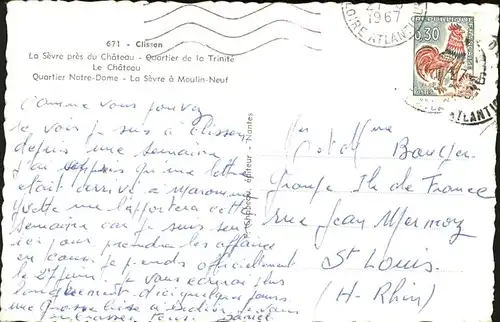 671 - Clisson
La Sèvre près du Château - Quartier de la Trinité
Le Château
Quartier Notre-Dame - La Sèvre à Moulin-Neuf
1967
LOIRE ATLANTIQUE
0,30
comme vous pouvez
le voir je suis à Clisson
depuis une semaine
j'ai appris que une lettre
était arrivé à
Yvette me l'apportera cette
semaine car je suis seul
ici pour prendre les affaires
en cours, je prends officiellement
le 27 juin. Je vous écrirai plus
longuement d'ici quelques jours
une grosse bise à
éditeur - Nantes
Mme
et Mell Boucher
Groupe Ile de France
rue Jean Mermoz
St Louis
(H-Rhin)